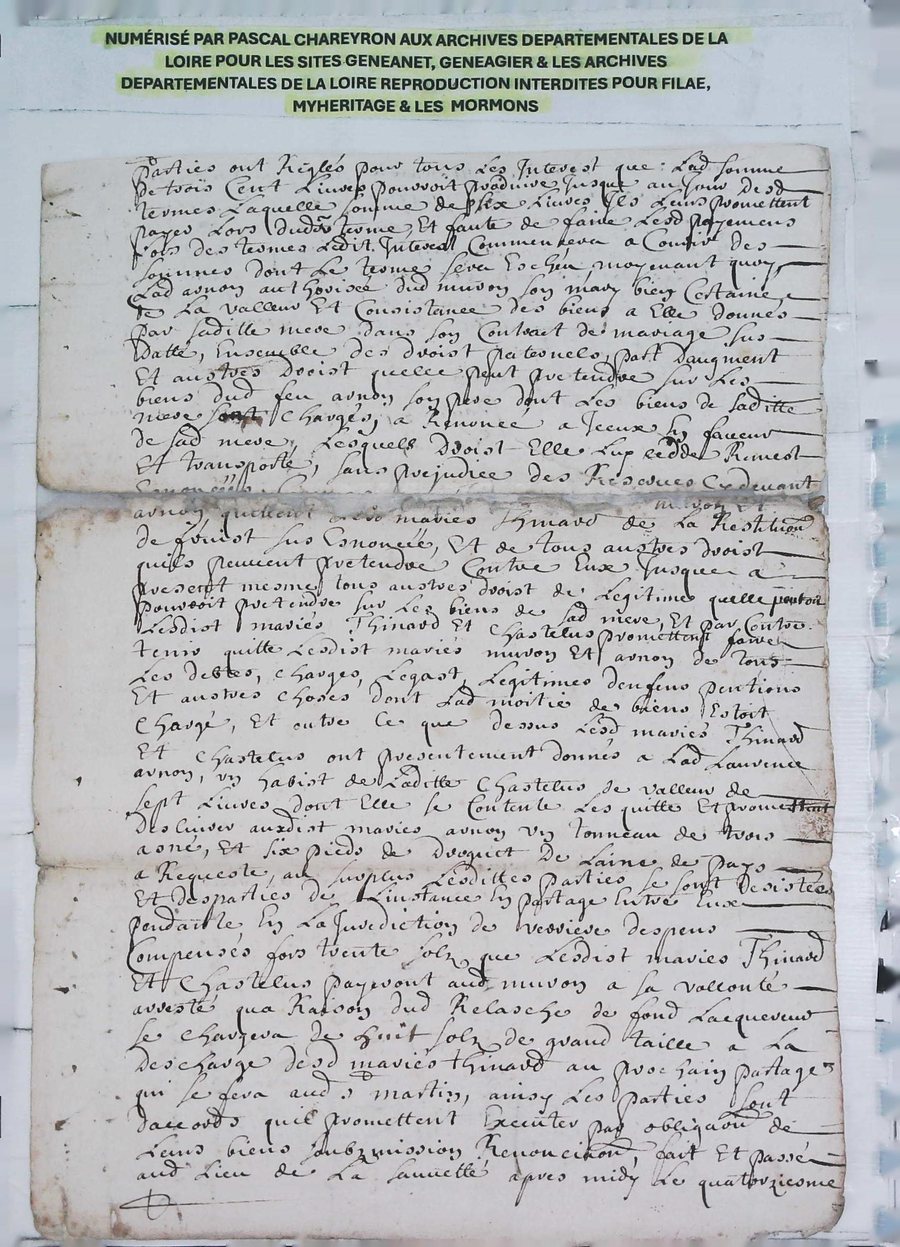 NUMÉRISÉ PAR PASCAL CHAREYRON AUX ARCHIVES DEPARTEMENTALES DE LA
LOIRE POUR LES SITES GENEANET, GENEAGIER & LES ARCHIVES
DEPARTEMENTALES DE LA LOIRE REPRODUCTION INTERDITES POUR FILAE,
MYHERITAGE & LES MORMONS
parties ont Reglés pour tous Les Interest que Lad somme
de trois Cent Liures pouvoit produire Jusque au Jour desd
termes Laquelle somme de dix Liures Ils Leurs promettent
payer Lors dud terme Et faute de faire Lesd payemens
Lors des termes Ledit Interest Commencera a Courir des
sommes dont Le terme sera Escheu moyenant quoy
Lad arnon authorisée dud muron son mary bien Certaine
de La valleur Et Consistance des biens a Elle donnés
par saditte mere dans son Contract de mariage sus
datté, Ensemble des droist paternels, part daugment
Et austres droist quelle peut pretendre sur Les
biens dud feu arnon son pere dont Les biens de saditte
mere sont Chargés, a Renoncé a Iceux En faueur
de sad mere, Lesquels droist Elle Luy cedde Remest
Et transporté, sans prejudice des Reserues Cydeuant
muron Et
arnon quittent mariés Thinard de La Restition
de fruist sus Enoncée, Et de tous austres droist
quils peuuent pretendre Contre Eux Jusques a
present mesme tous austres droist de Legitime quelle
pouvoit pretendre sur Les biens de sad mere, Et par Contre
Lesdist mariés Thinard Et Chastelus promettent faire
tenir quitte Lesdist mariés muron Et arnon de tous
Les debtes, Charges, Legast, Legitimes denfens pentions
Et austres Choses dont Lad moitié de biens Estoit
Chargé, Et outre Ce que dessus Lesd mariés Thinard
Et Chastelus ont presentement donnés a Lad Laurence
arnon, vn habist de Laditte Chastelus de valleur de
sept Liures dont Elle se Contente Les quitte Et promettent
desliurer auxdist mariés arnon vn tonneau de trois
asné, Et six pieds de droguet de Laine de pays
a Requeste, au surplus Lesdittes parties se sont desistées
Et desparties de Linstance En partage Entre Eux
pendante En La Jurediction de verriere despens
Compensés fors trente solz que Lesdist mariés Thinard
Et Chastelus payeront aud muron a sa vollonté
arresté qua Raison dud Relasche de fond Lacquereur
se Chargera de huit solz de grand taille a La
descharge desd mariés thinard au prochain partage
qui se fera aud St martin, ainsy Les parties sont
daccords quil promettent Executer par obligaon de
Leurs biens soubzmission Renonciaon, fait Et passé
aud Lieu de La sauuetté apres midy Le quatorziesme